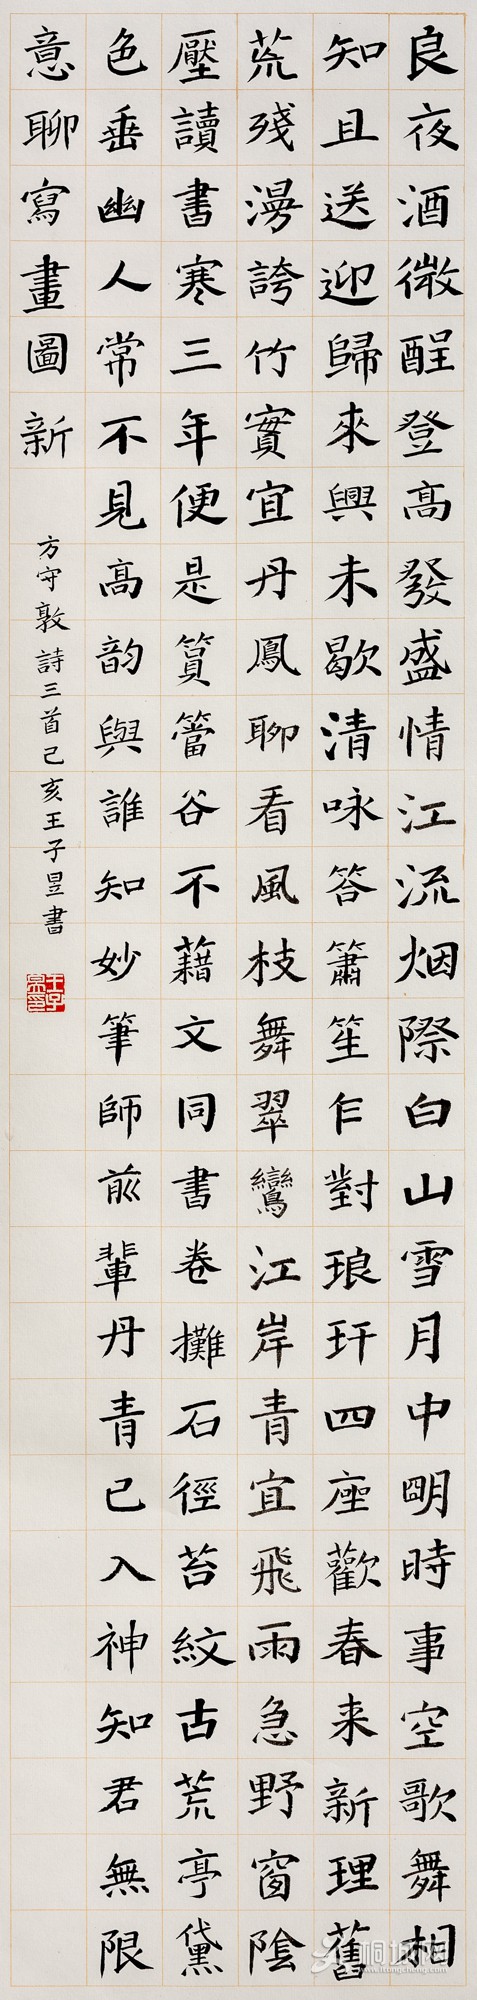 良夜酒微酲登高發盛情江流烟際白山雪月中朙時事空歌舞相
知且送迎歸來興未歇清咏答簫笙乍對琅玕四座歡春来新理舊
荒殘漫誇竹實宜丹鳳聊看風枝舞翠鸞江岸青宜飛雨急野窗陰
壓讀書寒三年便是篔簹谷不藉文同書卷攤石徑苔紋古荒亭黛
色垂幽人常不見高韵與誰知妙筆師前輩丹青已入神知君無限
意聊寫畫圖新
方守敦詩三首己亥王子昱書
王子昱印
桐城网